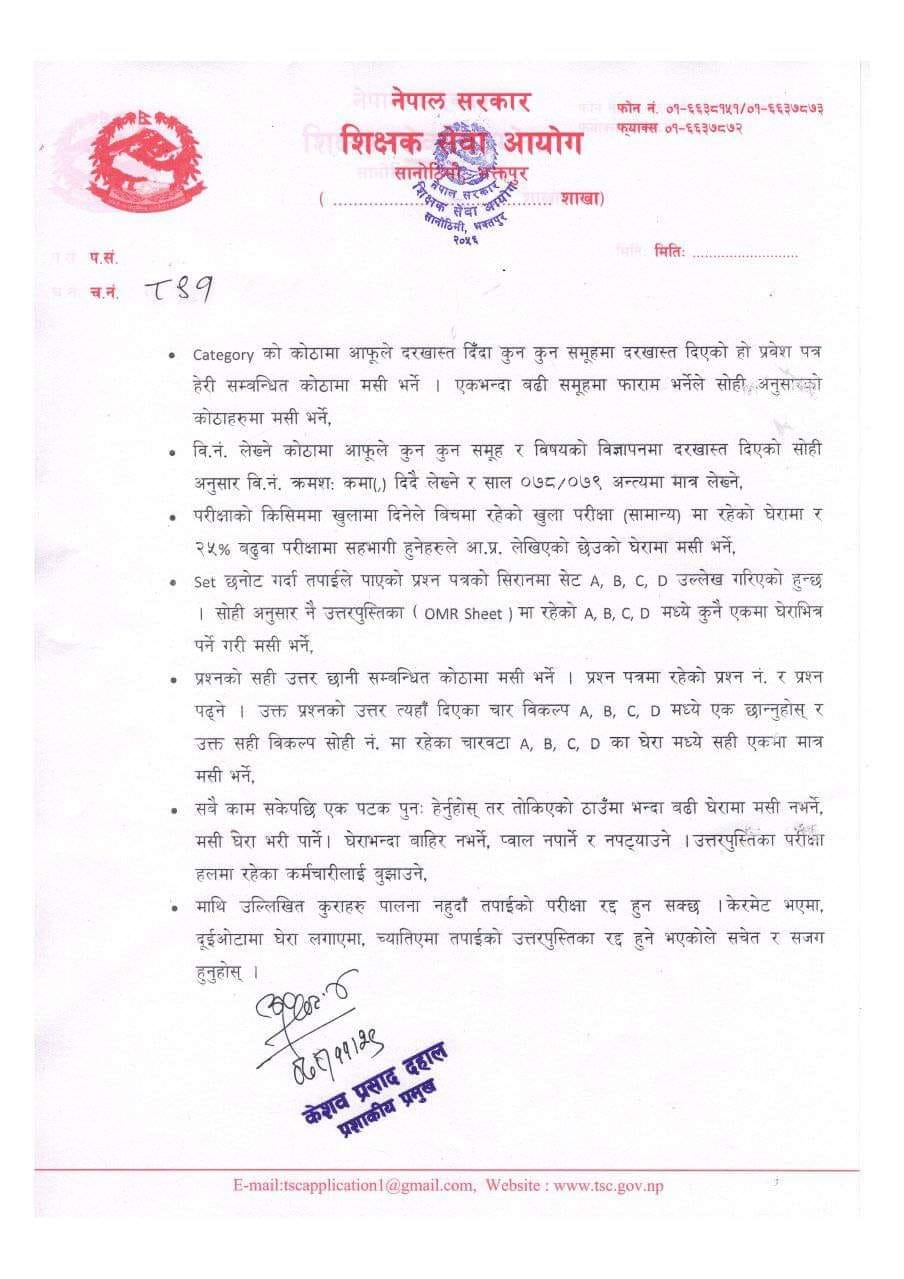 नेपाल सरकार
शिक्षक सेवा आयोग
सानोठिमी, भक्तपुर
( ........................................ शाखा)
फोन नं. ०१-६६३८१५१/०१-६६३७८७३
फ्याक्स ०१-६६३७८७२
नेपाल सरकार
शिक्षक सेवा आयोग
सानोठिमी, भक्तपुर
२०५६
प.सं.
मितिः ..........................
च.नं.
• Category को कोठामा आफूले दरखास्त दिँदा कुन कुन समूहमा दरखास्त दिएको हो प्रवेश पत्र
हेरी सम्वन्धित कोठामा मसी भर्ने । एकभन्दा बढी समूहमा फाराम भर्नेले सोही अनुसारको
कोठाहरुमा मसी भर्ने,
• वि.नं. लेख्ने कोठामा आफूले कुन कुन समूह र विषयको विज्ञापनमा दरखास्त दिएको सोही
अनुसार वि.नं. क्रमश: कमा(,) दिदै लेख्ने र साल ०७८/०७९ अन्त्यमा मात्र लेख्ने,
• परीक्षाको किसिममा खुलामा दिनेले विचमा रहेको खुला परीक्षा (सामान्य) मा रहेको घेरामा र
२५% वढुवा परीक्षामा सहभागी हुनेहरुले आ.प्र. लेखिएको छेउको घेरामा मसी भर्ने,
• Set छनोट गर्दा तपाईले पाएको प्रश्न पत्रको सिरानमा सेट A, B, C, D उल्लेख गरिएको हुन्छ
। सोही अनुसार नै उत्तरपुस्तिका ( OMR Sheet ) मा रहेको A, B, C, D मध्ये कुनै एकमा घेराभित्र
पर्ने गरी मसी भर्ने,
• प्रश्नको सही उत्तर छानी सम्वन्धित कोठामा मसी भर्ने । प्रश्न पत्रमा रहेको प्रश्न नं. र प्रश्न
पढ्ने । उक्त प्रश्नको उत्तर त्यहाँ दिएका चार विकल्प A, B, C, D मध्ये एक छान्नुहोस् र
उक्त सही विकल्प सोही नं. मा रहेका चारवटा A, B, C, D का घेरा मध्ये सही एकमा मात्र
मसी भर्ने,
• सवै काम सकेपछि एक पटक पुनः हेर्नुहोस् तर तोकिएको ठाउँमा भन्दा बढी घेरामा मसी नभर्ने,
मसी घेरा भरी पार्ने। घेराभन्दा बाहिर नभर्ने, प्वाल नपार्ने र नपट्याउने ।उत्तरपुस्तिका परीक्षा
हलमा रहेका कर्मचारीलाई वुझाउने,
• माथि उल्लिखित कुराहरु पालना नहुदाँ तपाईको परीक्षा रद्द हुन सक्छ ।केरमेट भएमा,
दूईओटामा घेरा लगाएमा, च्यातिएमा तपाईको उत्तरपुस्तिका रद्द हुने भएकोले सचेत र सजग
हुनुहोस् ।
केशव प्रसाद दहाल
प्रशाकीय प्रमुख
E-mail:tscapplication1@gmail.com, Website : www.tsc.gov.np